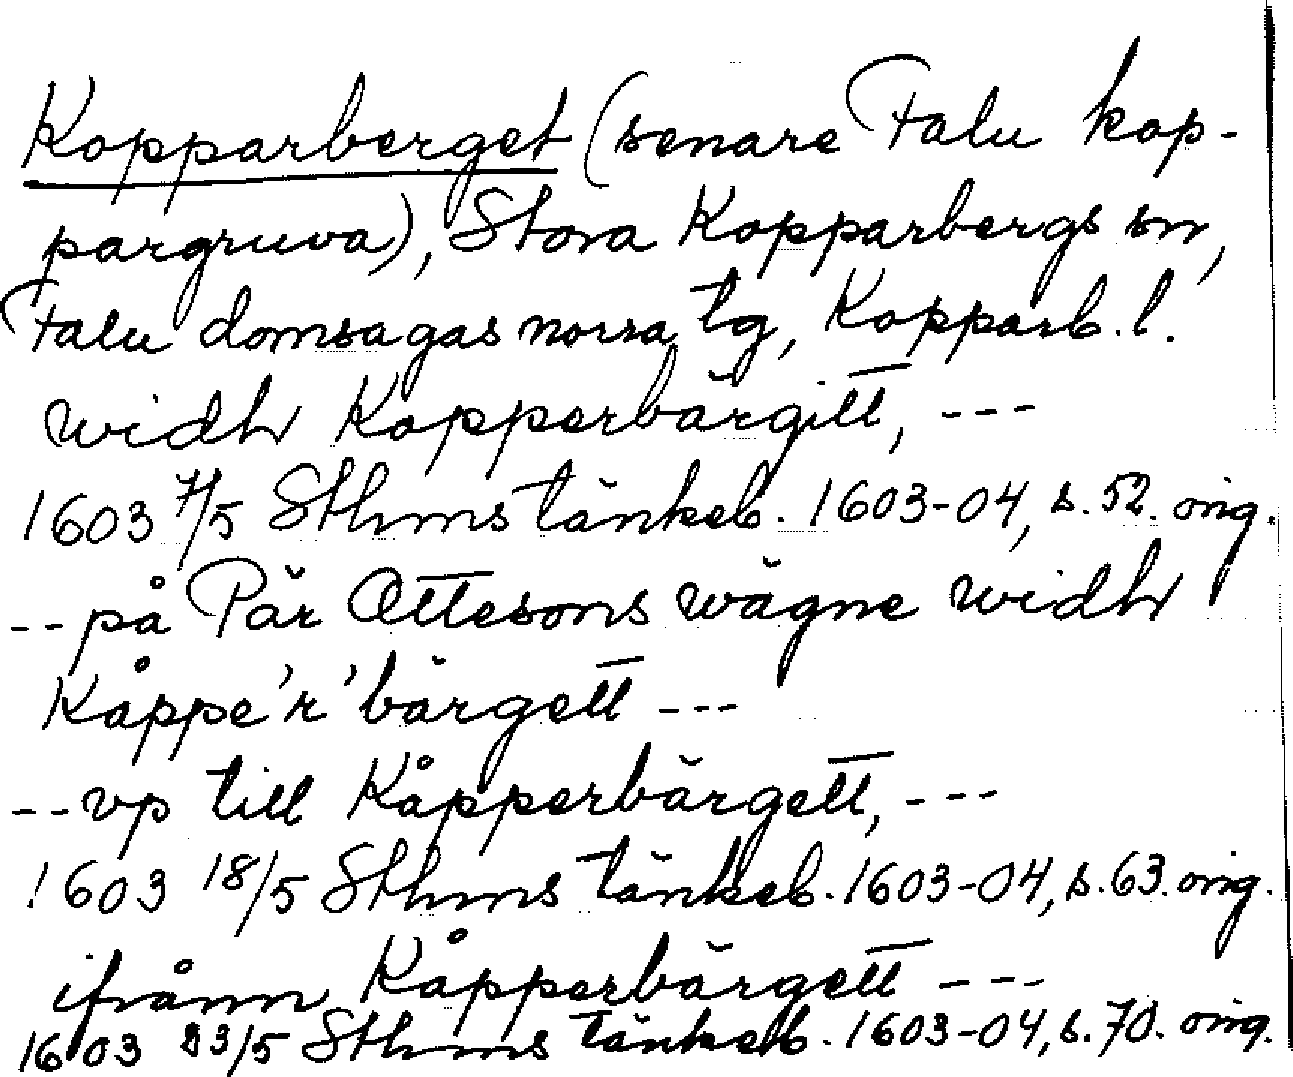 Kopparberget (senare Falu kop-
pargruva), Stora Kopparbergs sn,
Falu domsagas norra tg, Kopparb. l.
widh Kopperbärgitt, ---
1603 7/5 Sthms tänkeb. 1603-04, s. 52. orig.
-- på Pär Ottesons wägne widh
Kåppe'r'bärgett ---
-- vp till Kåpperbärgett, ---
1603 18/5 Sthms tänkeb. 1603-04, s. 63. orig.
ifrånn Kåpperbärgett ---
1603 23/5 Sthms tänkeb. 1603-04, s. 70. orig.